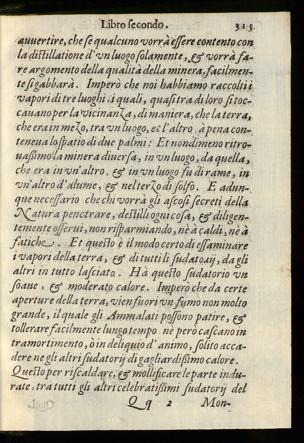 Libro secondo. 315.
auuertire, che se qualcuno vorrà essere contento con
la distillatione d'vn luogo solamente, & vorrà fa-
re argomento della qualità della minera, facilmen-
te si gabbarà. Imperò che noi habbiamo raccolti i
vapori di tre luoghi, i quali, quasi tra di loro si toc-
cauano per la vicinanza, di maniera, che la terra,
che era in mezo, tra vn luogo, et l'altro, à pena con-
teneua lo spatio di due palmi: Et nondimeno ritro-
uassimo la minera diuersa, in vn luogo, da quella,
che era in vn'altro, & in vn luogo fu di rame, in
vn'altro d'alume, & nel terzo di solfo. E adun-
que necessario che chi vorrà gli ascosi secreti della
Natura penetrare, destilli ogni cosa, & diligen-
temente osserui, non risparmiando, nè à caldi, nè à
fatiche. Et questo è il modo certo di essaminare
i vapori della terra, & di tutti li sudatorij, da gli
altri in tutto lasciato. Hà questo sudatorio vn
soaue, & moderato calore. Imperò che da certe
aperture della terra, vien fuori vn fumo non molto
grande, il quale gli Ammalati possono patire, &
tollerare facilmente lungo tempo. nè però cascano in
tramortimento, ò in deliquio d'animo, solito acca-
dere ne gli altri sudatorij di gagliardissimo calore.
Questo per riscaldare, & mollificare le parte indu-
rate, tra tutti gli altri celebratissimi sudatorij del
Qq 2 Mon-